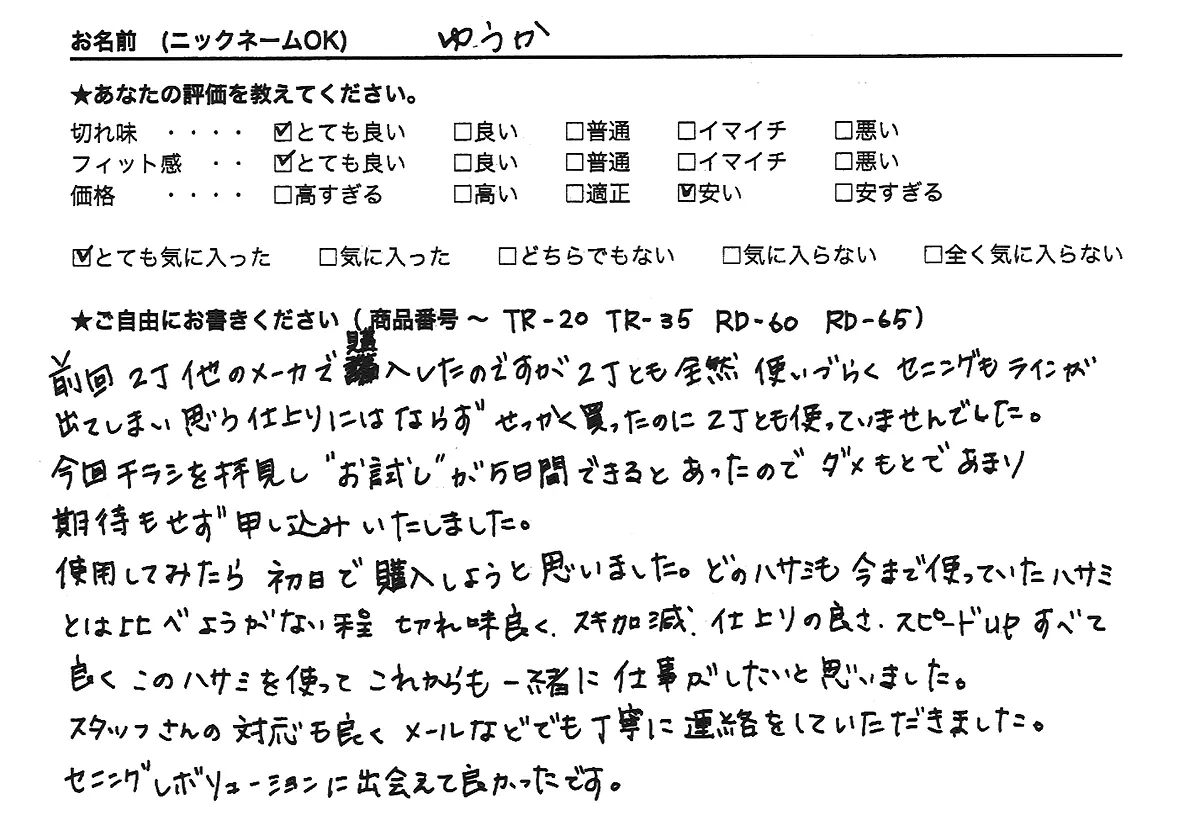 お名前 (ニックネームOK) ゆうか
★あなたの評価を教えてください。
切れ味 ・・・・ ☑とても良い □良い □普通 □イマイチ □悪い
フィット感 ・・ ☑とても良い □良い □普通 □イマイチ □悪い
価格 ・・・・ □高すぎる □高い □適正 ☑安い □安すぎる
☑とても気に入った □気に入った □どちらでもない □気に入らない □全く気に入らない
★ご自由にお書きください (商品番号～ TR-20 TR-35 RD-60 RD-65)
前回 2丁他のメーカで購入したのですが2丁とも全然 使いづらく セニングもラインが
出てしまい 思う仕上りにはならず せっかく買ったのに2丁とも使っていませんでした。
今回チラシを拝見し "お試し"が5日間できるとあったので ダメもとであまり
期待もせず申し込みいたしました。
使用してみたら 初日で購入しようと思いました。どのハサミも 今まで使っていたハサミ
とは比べようがない程 切れ味良く、スキ加減、仕上りの良さ、スピードup すべて
良くこのハサミを使って これからも一緒に仕事がしたいと思いました。
スタッフさんの対応も良く メールなどでも丁寧に連絡をしていただきました。
セニングレボリューションに出会えて良かったです。